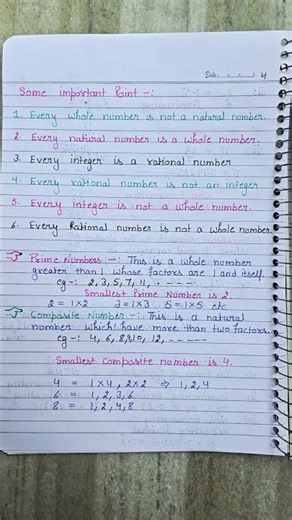 Date: 4
Some important Point -:
1. Every whole number is not a natural number.
2. Every natural number is a whole number.
3. Every integer is a rational number
4. Every rational number is not an integer
5. Every integer is not a whole number.
6. Every Rational number is not a whole number.
Prime Numbers -: This is a whole number
greater than 1 whose factors are 1 and itself.
eg -: 2, 3, 5, 7, 11, - - - - -
Smallest Prime Number is 2.
2 = 1×2 3 = 1×3 5 = 1×5 etc
Composite Number -: This is a natural
number which have more than two factors.
eg -: 4, 6, 8, 9, 10, 12, - - - - -
Smallest composite number is 4.
4 = 1×4, 2×2 ⇒ 1, 2, 4
6 = 1, 2, 3, 6
8 = 1, 2, 4, 8